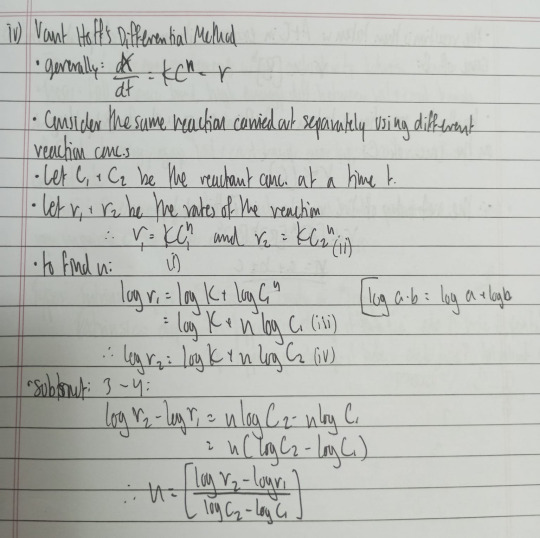 iv) Vant Hoff's Differential Method
• generally: dx/dt = KCⁿ = r
• Consider the same reaction carried out separately using different
reaction concs
• Let C₁ + C₂ be the reactant conc. at a time t.
• Let r₁ + r₂ be the rates of the reaction
∴ r₁ = KC₁ⁿ and r₂ = KC₂ⁿ (ii)
• to find n: (i)
log r₁ = log K + log C₁ⁿ [log a·b = log a + log b
= log K + n log C₁ (iii)
∴ log r₂ = log K + n log C₂ (iv)
• subtract: 3 - 4:
log r₂ - log r₁ = n log C₂ - n log C₁
= n (log C₂ - log C₁)
∴ n = [log r₂ - log r₁ / log C₂ - log C₁]